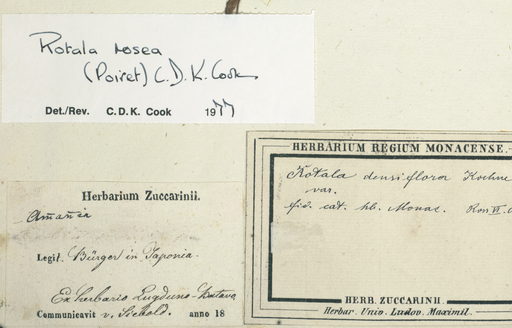 Rotala rosea
(Poiret) C.D.K. Cook
Det./Rev. C.D.K. Cook 1977
Herbarium Zuccarinii.
Amania
Legit. Bürger in Japonia.
Ex herbario Lugduno-Batavo
Communicavit v. Siebold. anno 18
HERBARIUM REGIUM MONACENSE.
Rotala densiflora Koehne
var.
fid. cat. hb. Monac.
HERB. ZUCCARINII.
Herbar. Univ. Ludov. Maximil.